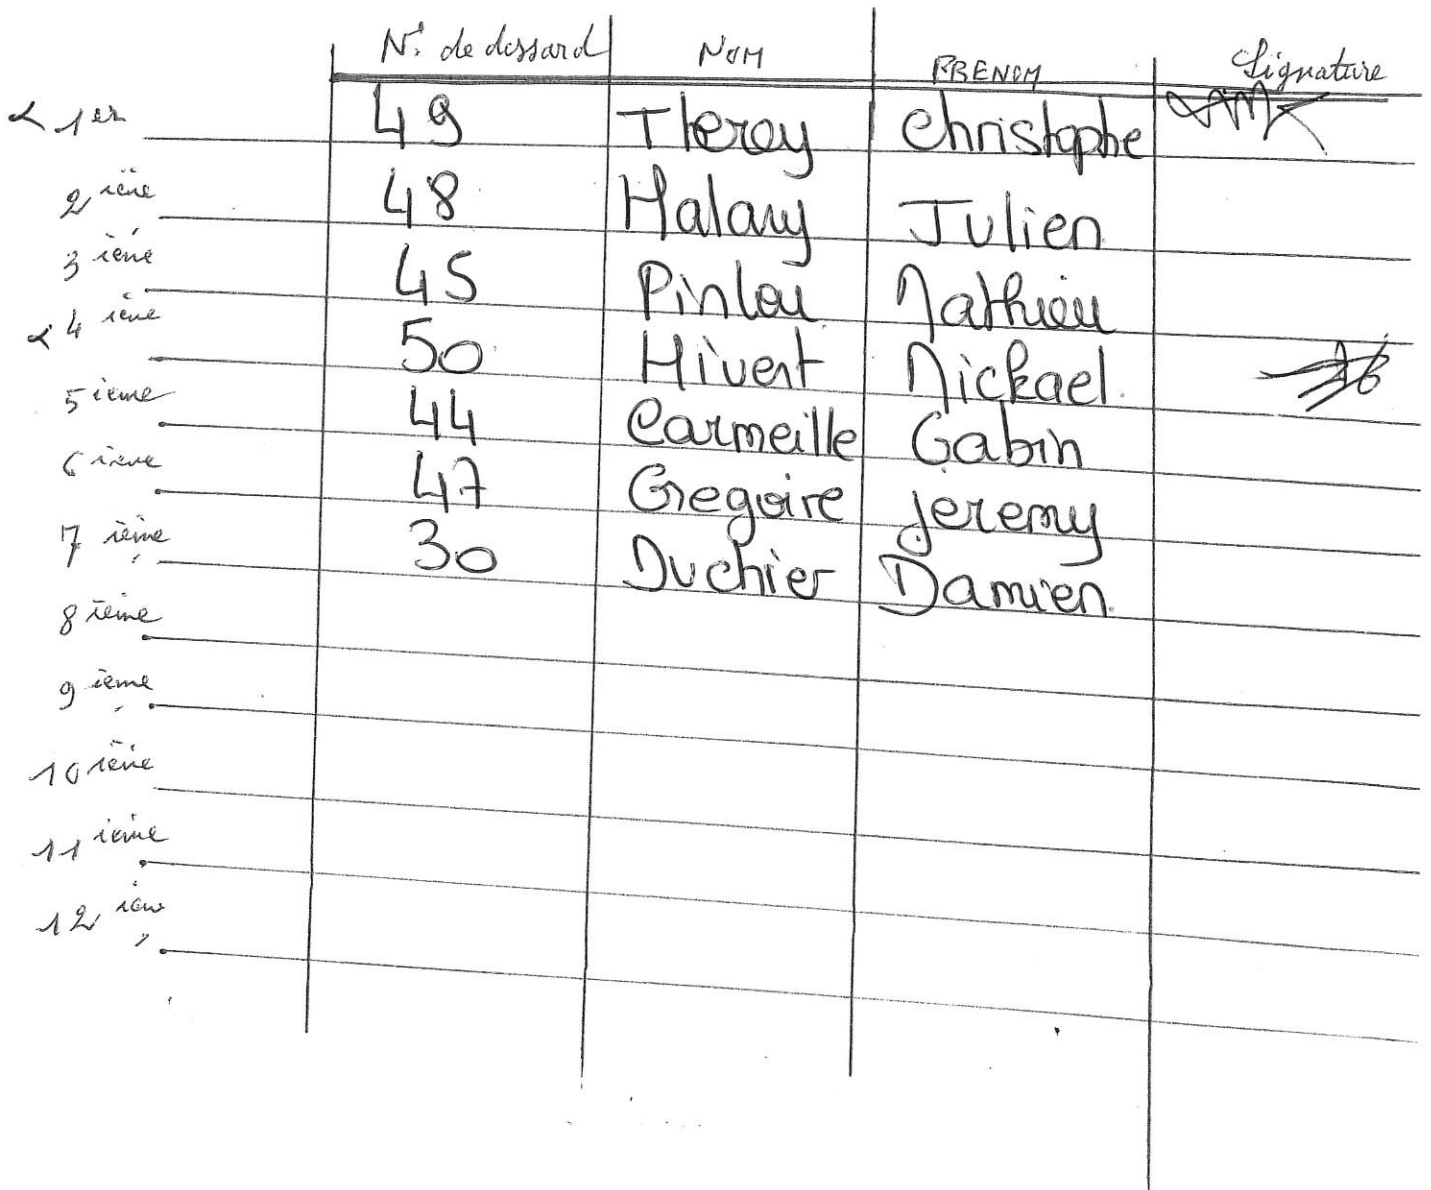 N° de dossard NOM PRENOM Signature
1er 49 Tleroy Christophe
2ième 48 Halary Julien
3ième 45 Pinlou Mathieu
4ième 50 Hivert Mickael
5ième 44 Carmeille Gabin
6ième 47 Gregoire jeremy
7ième 30 Duchier Damien
8ième
9ième
10ième
11ième
12ième